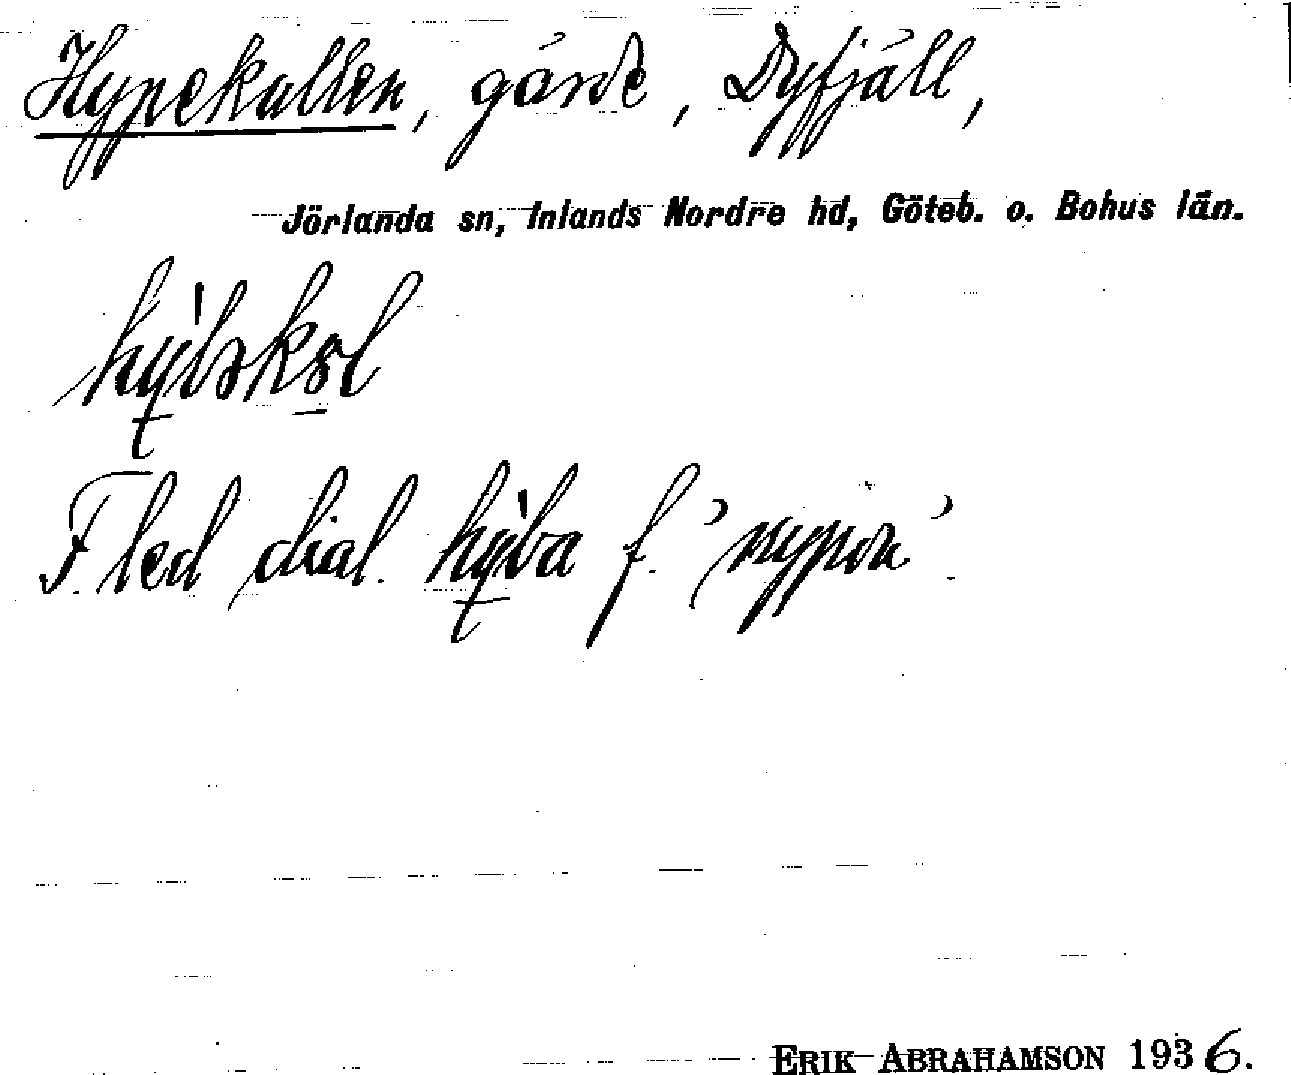 Hypekullen, gärde, Dyfjäll,
Jörlanda sn, Inlands Nordre hd, Göteb. o. Bohus län.
F. led dial. hy̵̍ba f. 'nypon'.
ERIK ABRAHAMSON 1936.